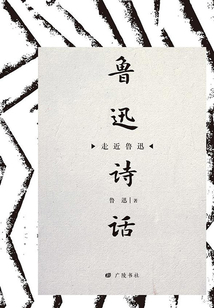 鲁迅诗话
走近鲁迅
鲁迅 著
广陵书社